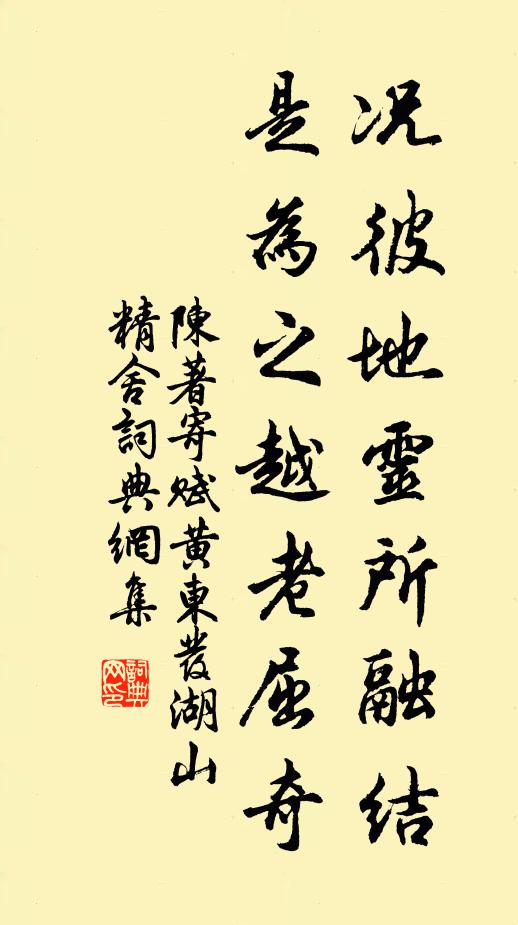 况彼地靈所融結
是為之越老屈奇
陳著寄賦黄東發湖山
精舍詞典網集
詞典网印